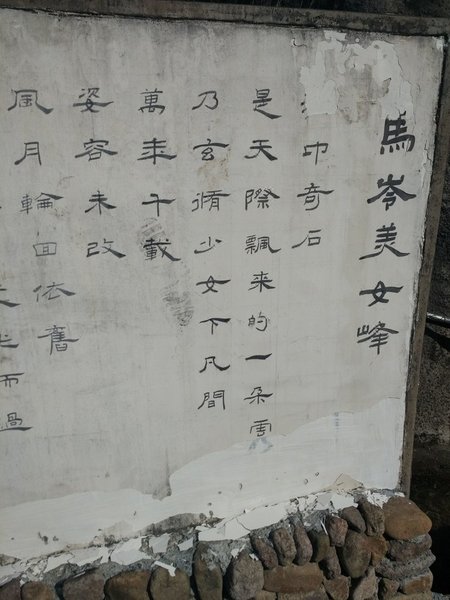 馬岺美女峰
印奇石
是天際飄来的一朵雲
乃玄脩少女下凡間
萬年千載
姿容未改
風月輪回依舊
而過